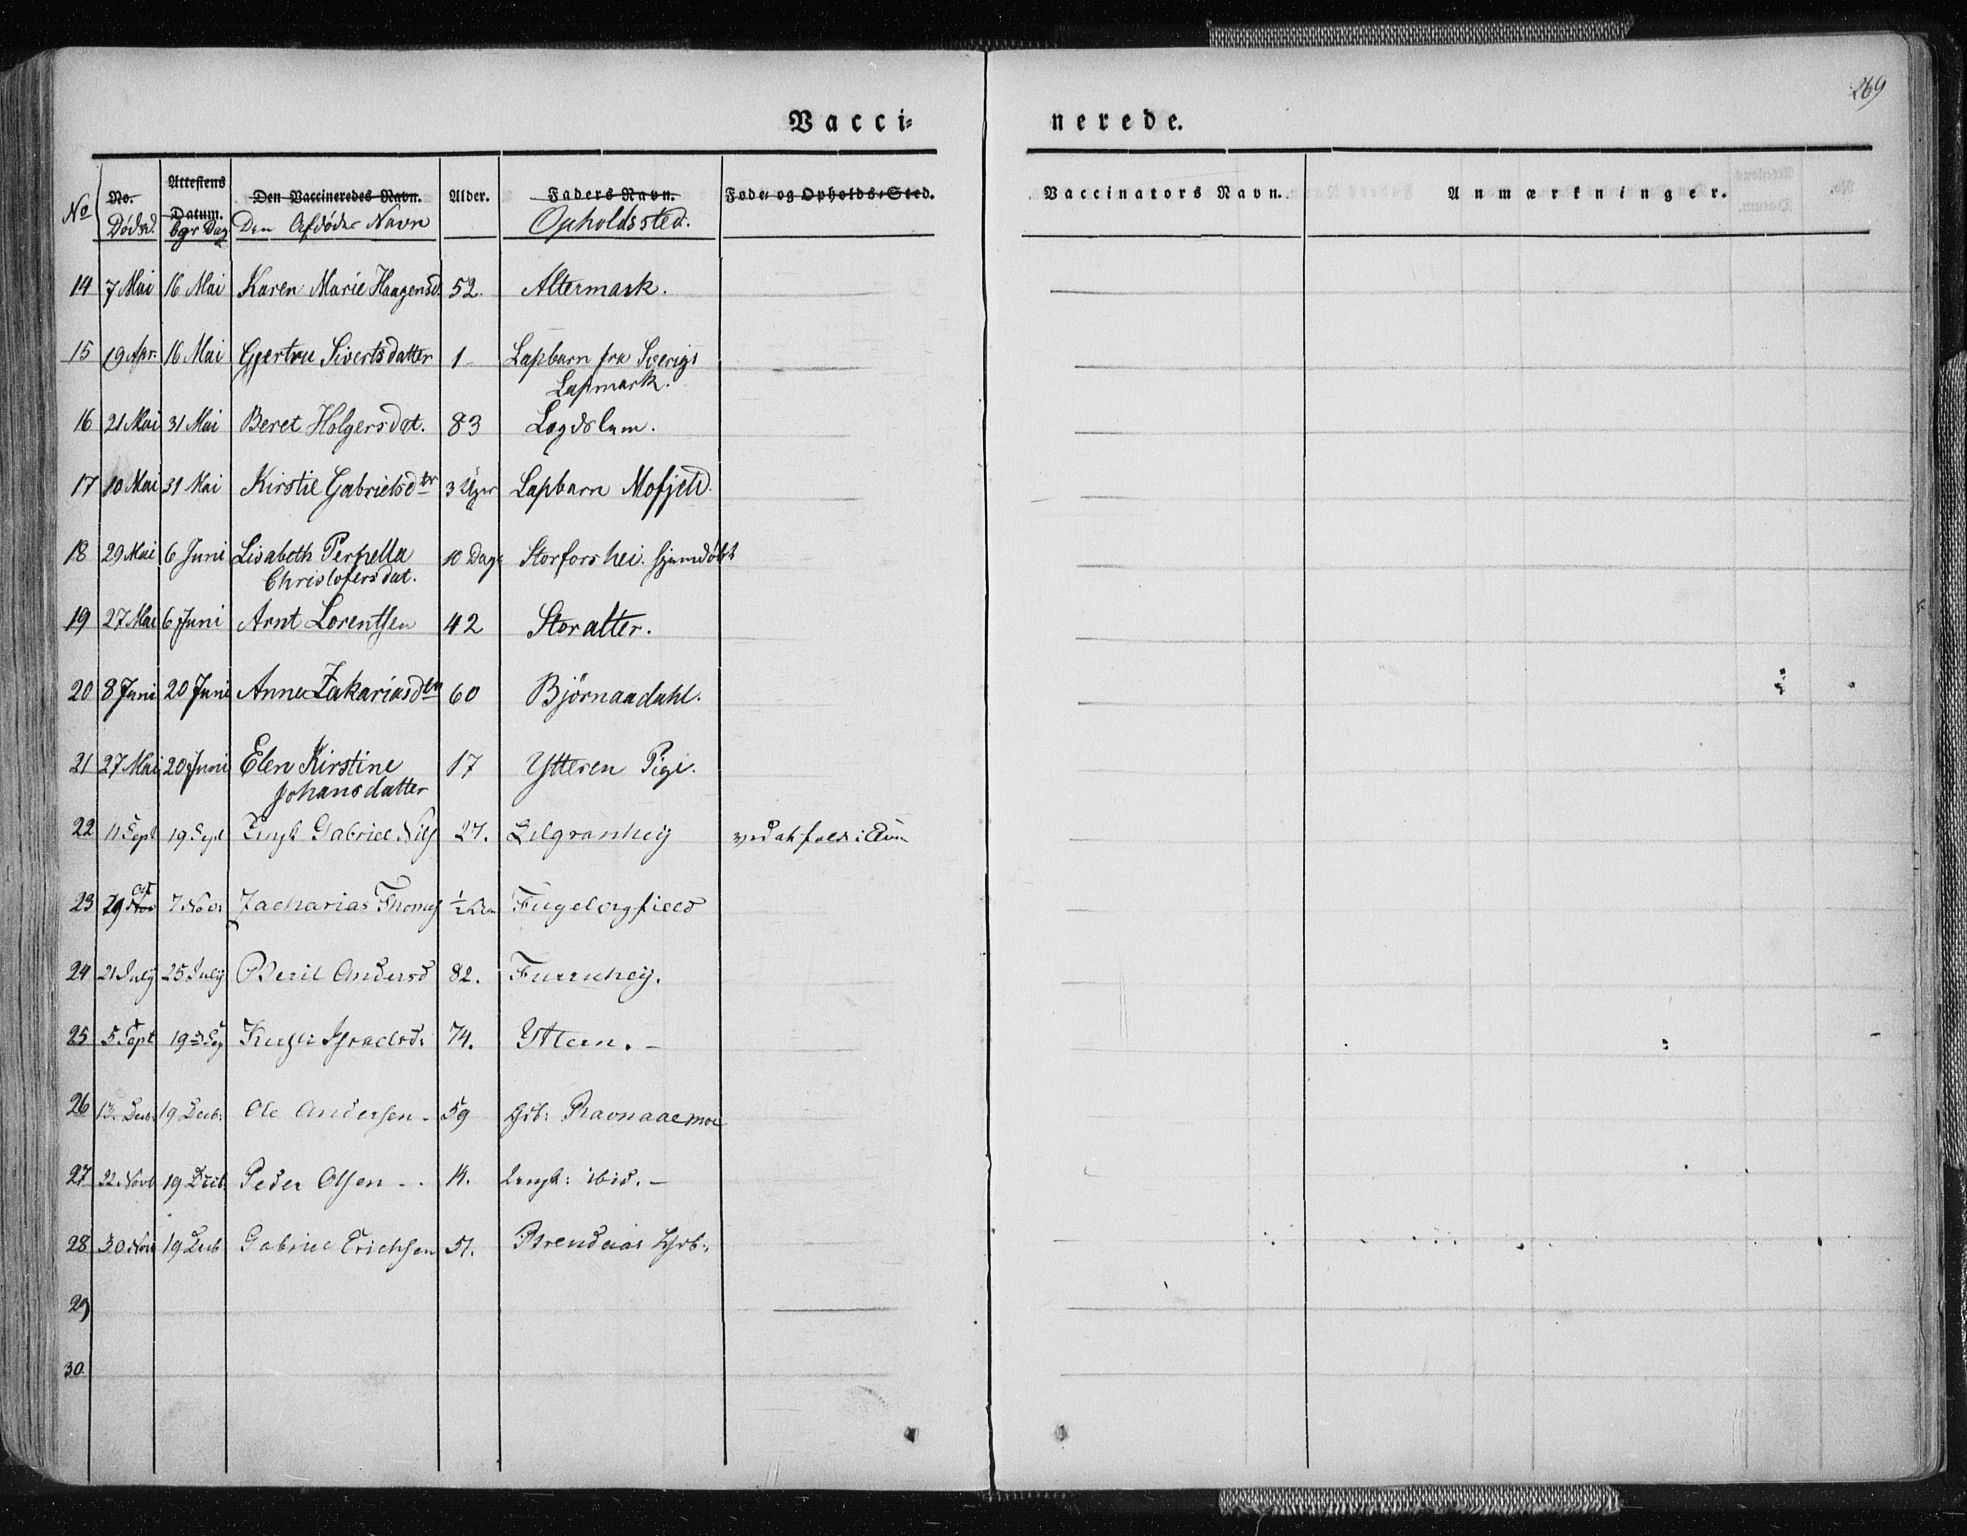 269
Vacci-
nerede.
No
No. Attestens Datum. Den Vaccineredes Navn. Alder. Faders Navn. Føde- og Opholds-Sted. Vaccinators Navn. Anmærkninger.
Dødsd. bgr Dag Den Afdødes Navn Opholdssted.
14 7 Mai 16 Mai Karen Marie Haagensd. 52. Altermark.
15 19 Apr. 16 Mai Gjertru Sivertsdatter 1 Lapbarn fra Sverigs
Lapmark.
16 21 Mai 31 Mai Beret Holgersdat. 83 Lægdslem.
17 10 Mai 31 Mai Kirstie Gabrielsdtr 3 Uger Lapbarn Mofjeld.
18 29 Mai 6 Juni Lisabeth Pernella 10 Dage Storforshei. hjemdøbt
Christofersdat.
19 27 Mai 6 Juni Arnt Lorentsen 42 Storalter.
20 8 Juni 20 Juni Anne Zakariasdtr 60 Bjørnaadahl.
21 27 Mai 20 Juni Elen Kirstine 17 Ytteren Pige.
Johansdatter
22 11 Sept 19 Sept Gabriel Nils 27.
23 29 Oct 7 Nov: Zacharias Thomas 1/2
24 21 July 25 July Beril Andersd 82. Furruheij.
25 5 Sept 19 Israelsd: 74. Ytteren. –
26 13. Decb: 19 Decb: Ole Andersen – 59 Grb: Ravnaaemoe
27 22 Novb 19 Decb. Peder Olsen – . ibid. –
28 30 Nov 19 Decb Gabriel Erichsen 51. Brendaas
29
30.